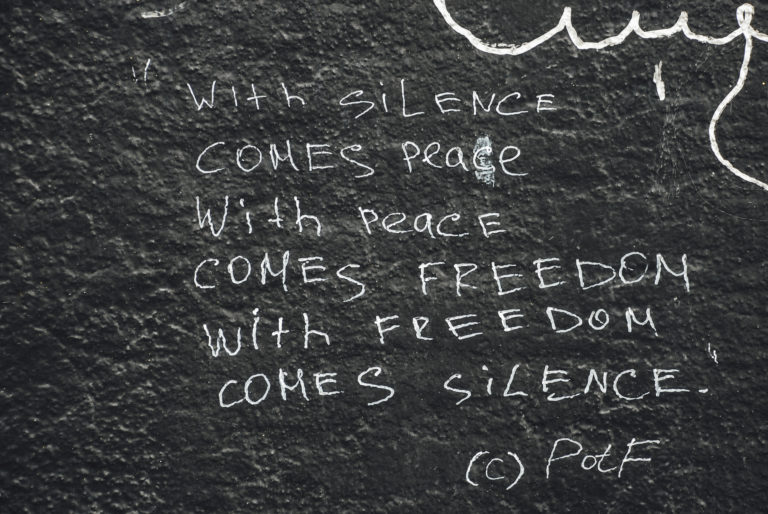 "With SiLENCE
COMES peace
With peacE
COMES FREEDOM
With FREEDOM
COMES SiLENCE."
(c) PotF